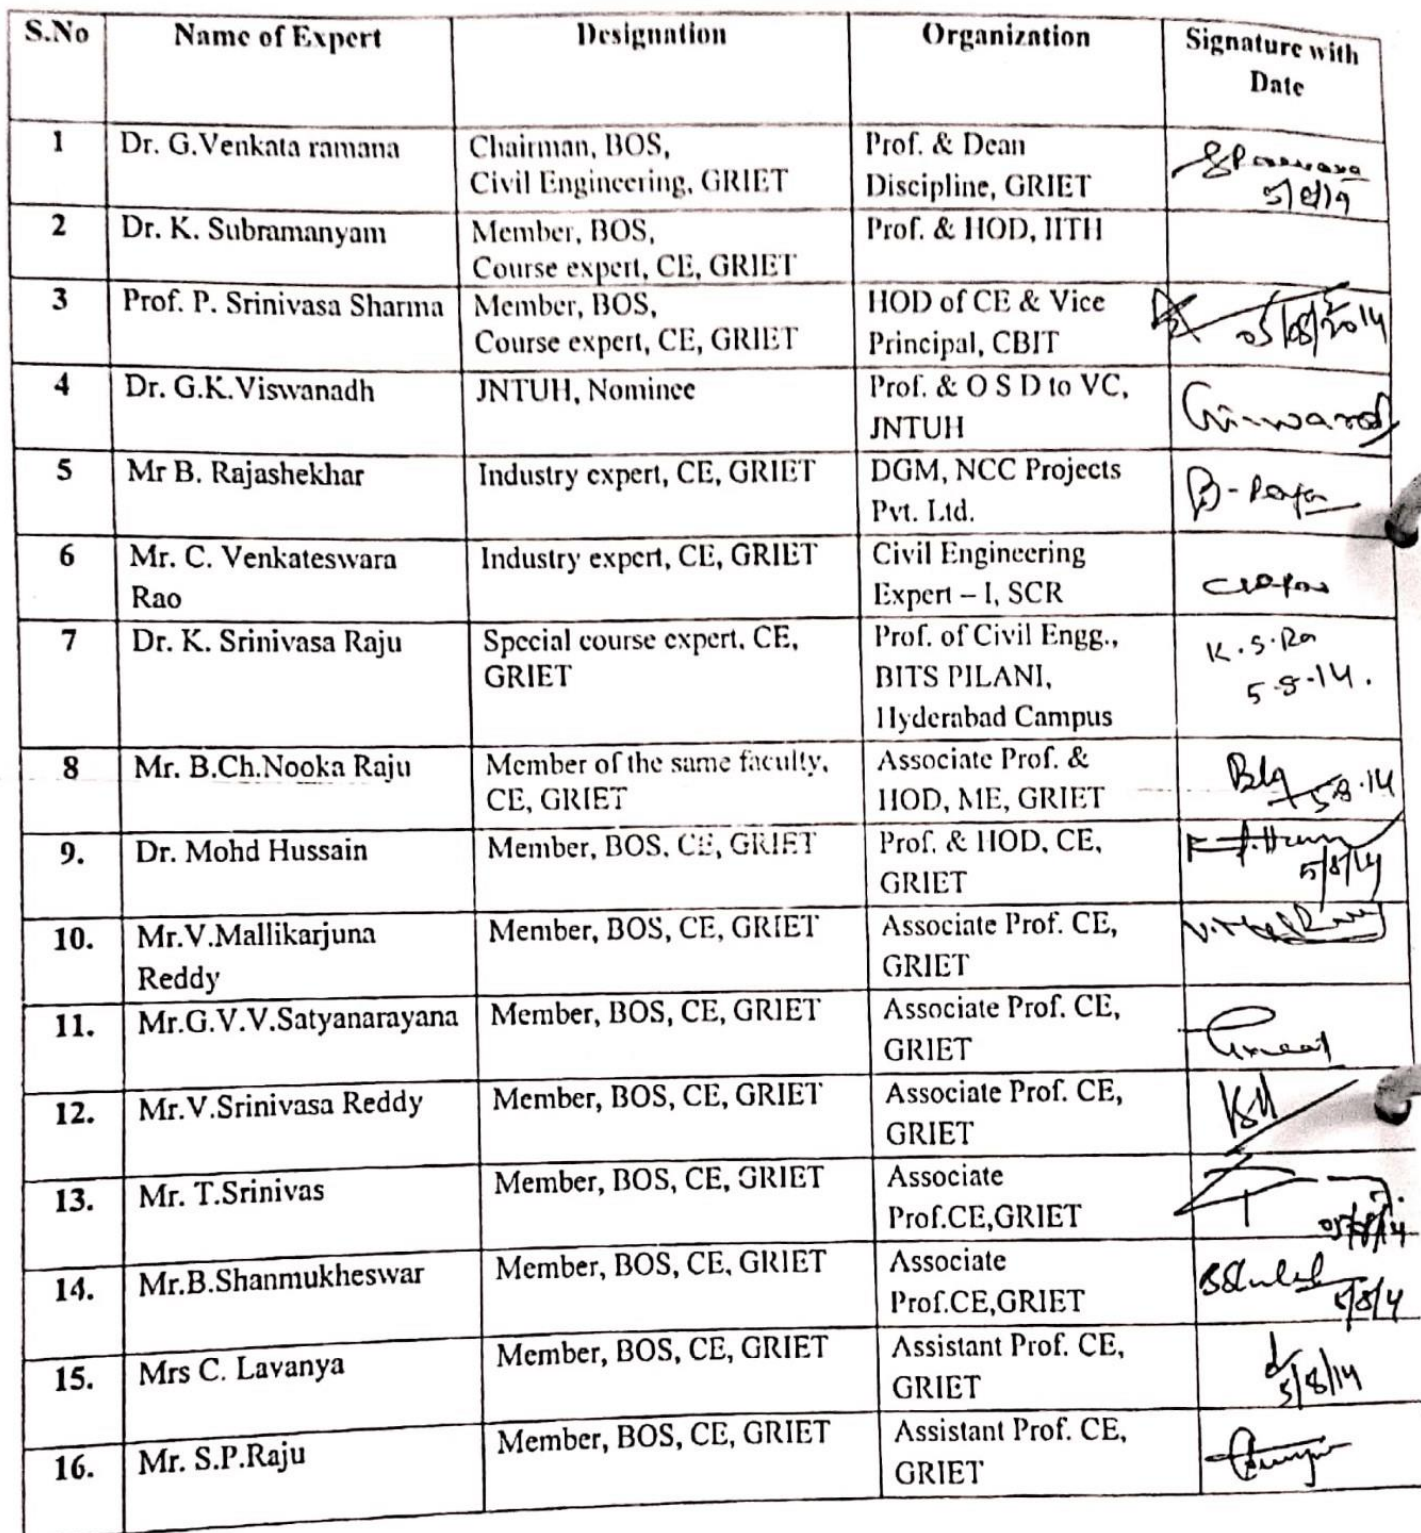 S.No Name of Expert Designation Organization Signature with
Date
1 Dr. G.Venkata ramana Chairman, BOS, Prof. & Dean
Civil Engineering, GRIET Discipline, GRIET
2 Dr. K. Subramanyam Member, BOS, Prof. & HOD, IITH
Course expert, CE, GRIET
3 Prof. P. Srinivasa Sharma Member, BOS, HOD of CE & Vice 05/08/2014
Course expert, CE, GRIET Principal, CBIT
4 Dr. G.K.Viswanadh JNTUH, Nominee Prof. & O S D to VC,
JNTUH
5 Mr B. Rajashekhar Industry expert, CE, GRIET DGM, NCC Projects
Pvt. Ltd.
6 Mr. C. Venkateswara Industry expert, CE, GRIET Civil Engineering
Rao Expert – I, SCR
7 Dr. K. Srinivasa Raju Special course expert, CE, Prof. of Civil Engg., K.S.Ra
GRIET BITS PILANI, 5-8-14.
Hyderabad Campus
8 Mr. B.Ch.Nooka Raju Member of the same faculty, Associate Prof. &
CE, GRIET HOD, ME, GRIET 5.8.14
9. Dr. Mohd Hussain Member, BOS, CE, GRIET Prof. & HOD, CE,
GRIET 5/8/14
10. Mr.V.Mallikarjuna Member, BOS, CE, GRIET Associate Prof. CE,
Reddy GRIET
11. Mr.G.V.V.Satyanarayana Member, BOS, CE, GRIET Associate Prof. CE,
GRIET
12. Mr.V.Srinivasa Reddy Member, BOS, CE, GRIET Associate Prof. CE,
GRIET
13. Mr. T.Srinivas Member, BOS, CE, GRIET Associate
Prof.CE,GRIET 05/8/14
14. Mr.B.Shanmukheswar Member, BOS, CE, GRIET Associate
Prof.CE,GRIET 5/8/4
15. Mrs C. Lavanya Member, BOS, CE, GRIET Assistant Prof. CE,
GRIET 5/8/14
16. Mr. S.P.Raju Member, BOS, CE, GRIET Assistant Prof. CE,
GRIET